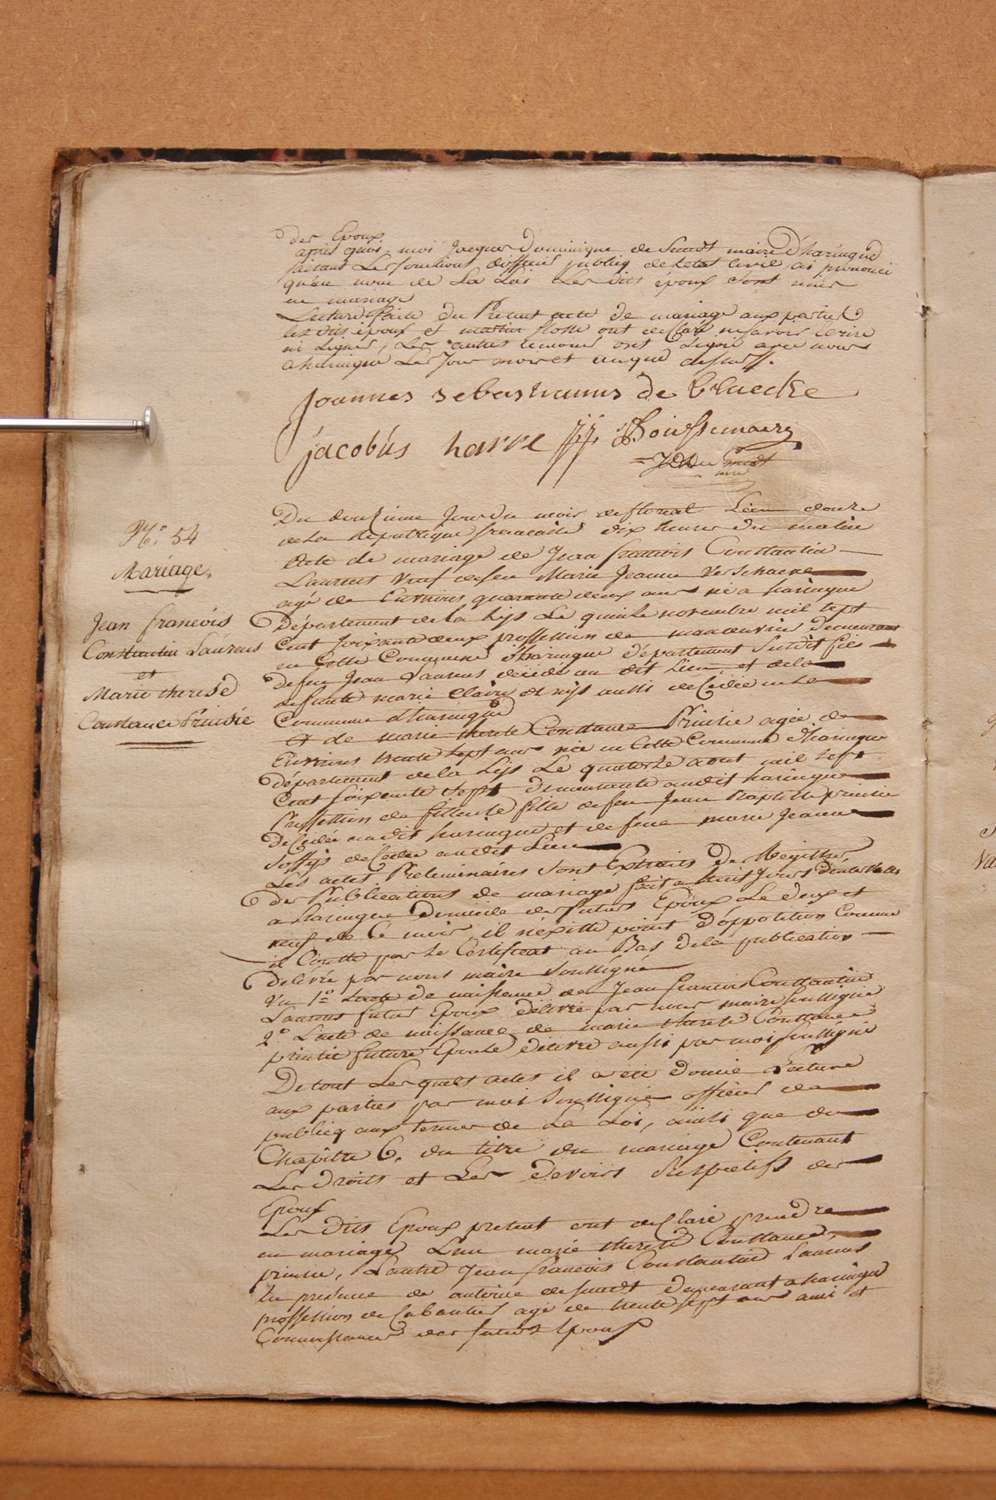 des Epoux
apres quoi, moi Jacques Dominique de Smidt maire d'haringue
faisant Les fonctions d'officier public de Letat Civil ai prononcé
qu'au nom de La Loi Les dits époux sont unis
en mariage
Lecture faite du Present acte de mariage aux parties
les dits époux et ont declaré ne savoir écrire
ni signer, Les autres temoins ont signé avec nous
a haringue Les Jour mois et an que dessus.
Joannes sebastianus de Bluecke
jacobus harre
N.° 54
Mariage.
Jean francois
Constantin Laureus
et
Marie therese
Constance Prinsie
Du douzieme Jour du mois de floreal L'an douze
de La Republique francaise dix heures du matin
Acte de mariage de Jean francois Constantin
Laureus veuf de feu Marie Jeanne Verschaeve
agé de Environs quarante deux ans né a haringue
Département de la Lys Le quinze novembre mil sept
Cent soixante deux profession de manœuvrier demeurant
en Cette Commune d'haringue département susdit fils
de feu Jean Laureus décédé au dit Lieu et de la
defunte marie Claire aussi decédée en La
Commune d'haringue
et de marie therese Constance Prinsie agée de
Environs trente sept ans née en Cette Commune d'haringue
département de la Lys Le quatorze aout mil sept
Cent soixante sept demeurante audit haringue
Profession de fileuse fille de feu Jean Baptiste prinsie
decédé au dit haringue et de feue marie Jeanne
decedée au dit Lieu
Les actes Preliminaires sont Extraits des Registres
des Publications de mariage fait a huit Jours d'intervalles
a haringue domicile des futurs Epoux Le deux et
neuf de Ce mois, il n'existe point d'opposition Comme
il Conste par Le Certificat au Bas de la publication
delivré par nous maire soussigné
Vu 1.° Lacte de naissance de Jean francois Constantin
Laureus futur Epoux délivré par nous maire soussigné
2.° Lacte de naissance de marie therese Constance
prinsie future Epouse délivré aussi par moi soussigné
De tout Lesquels actes il a été donné Lecture
aux parties par moi soussigné officier de
publicq aux termes de La Loi, ainsi que du
Chapitre 6. du titre du mariage Contenant
Les droits et Les devoirs Respectifs des
Epoux
Les dits Epoux present ont declaré prendre
en mariage L'un marie therese Constance
prinsie, L'autre Jean francois Constantin Laureus
En presence de antoine desmidt demeurant a haringue
profession de Cabaretier agé de trente sept ans ami et
Connoissance des futurs Epoux